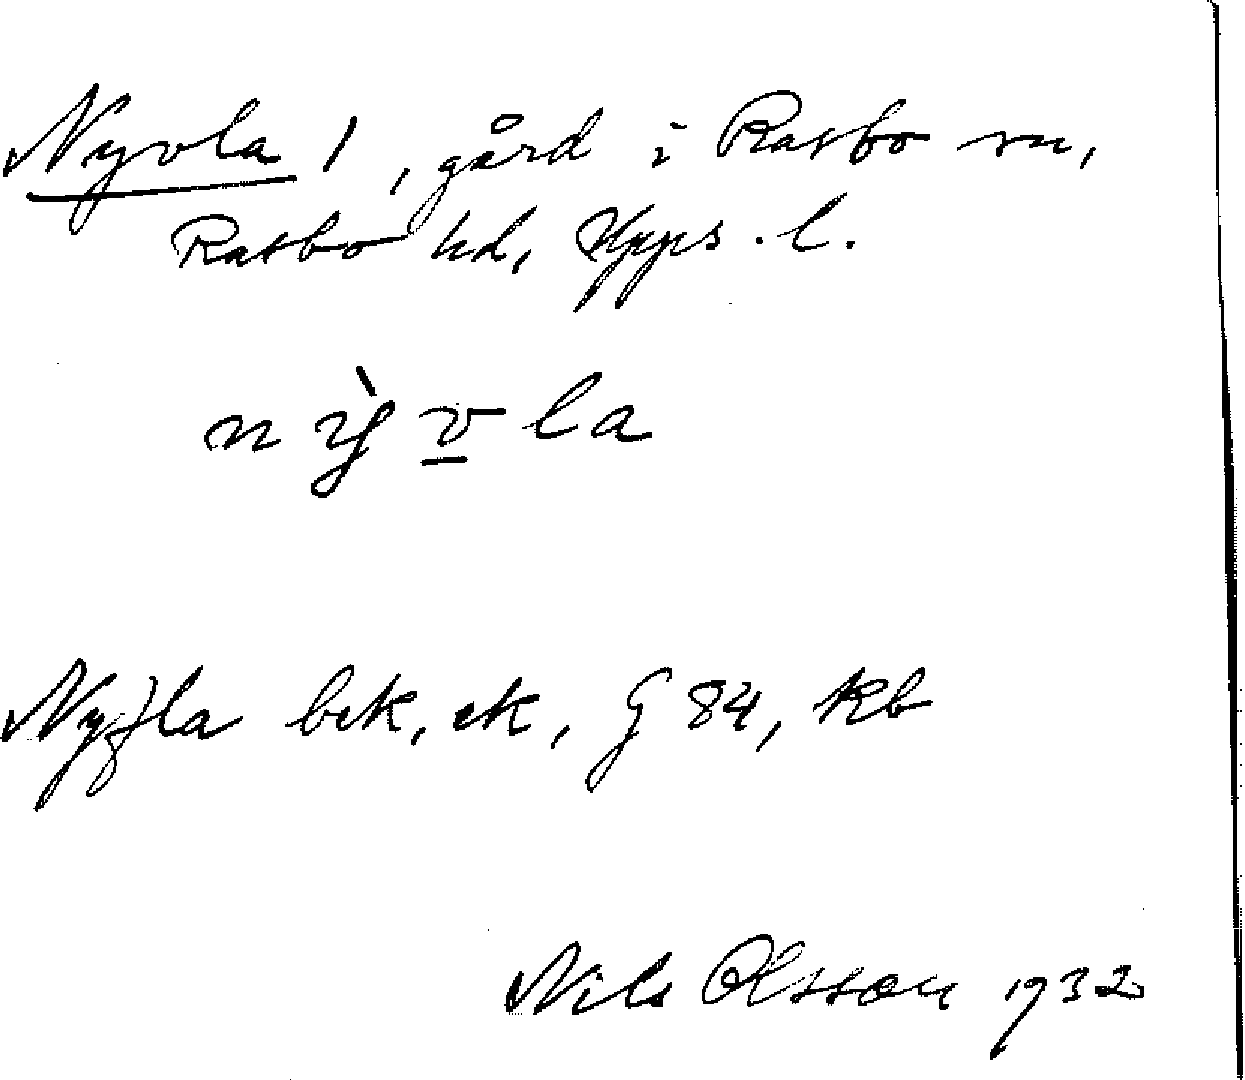 Nyvla 1, gård i Rasbo sn,
Rasbo hd, Upps. l.
nỳvla
Nyfla bek, ek, G 84, kb
Nils Olsson 1932